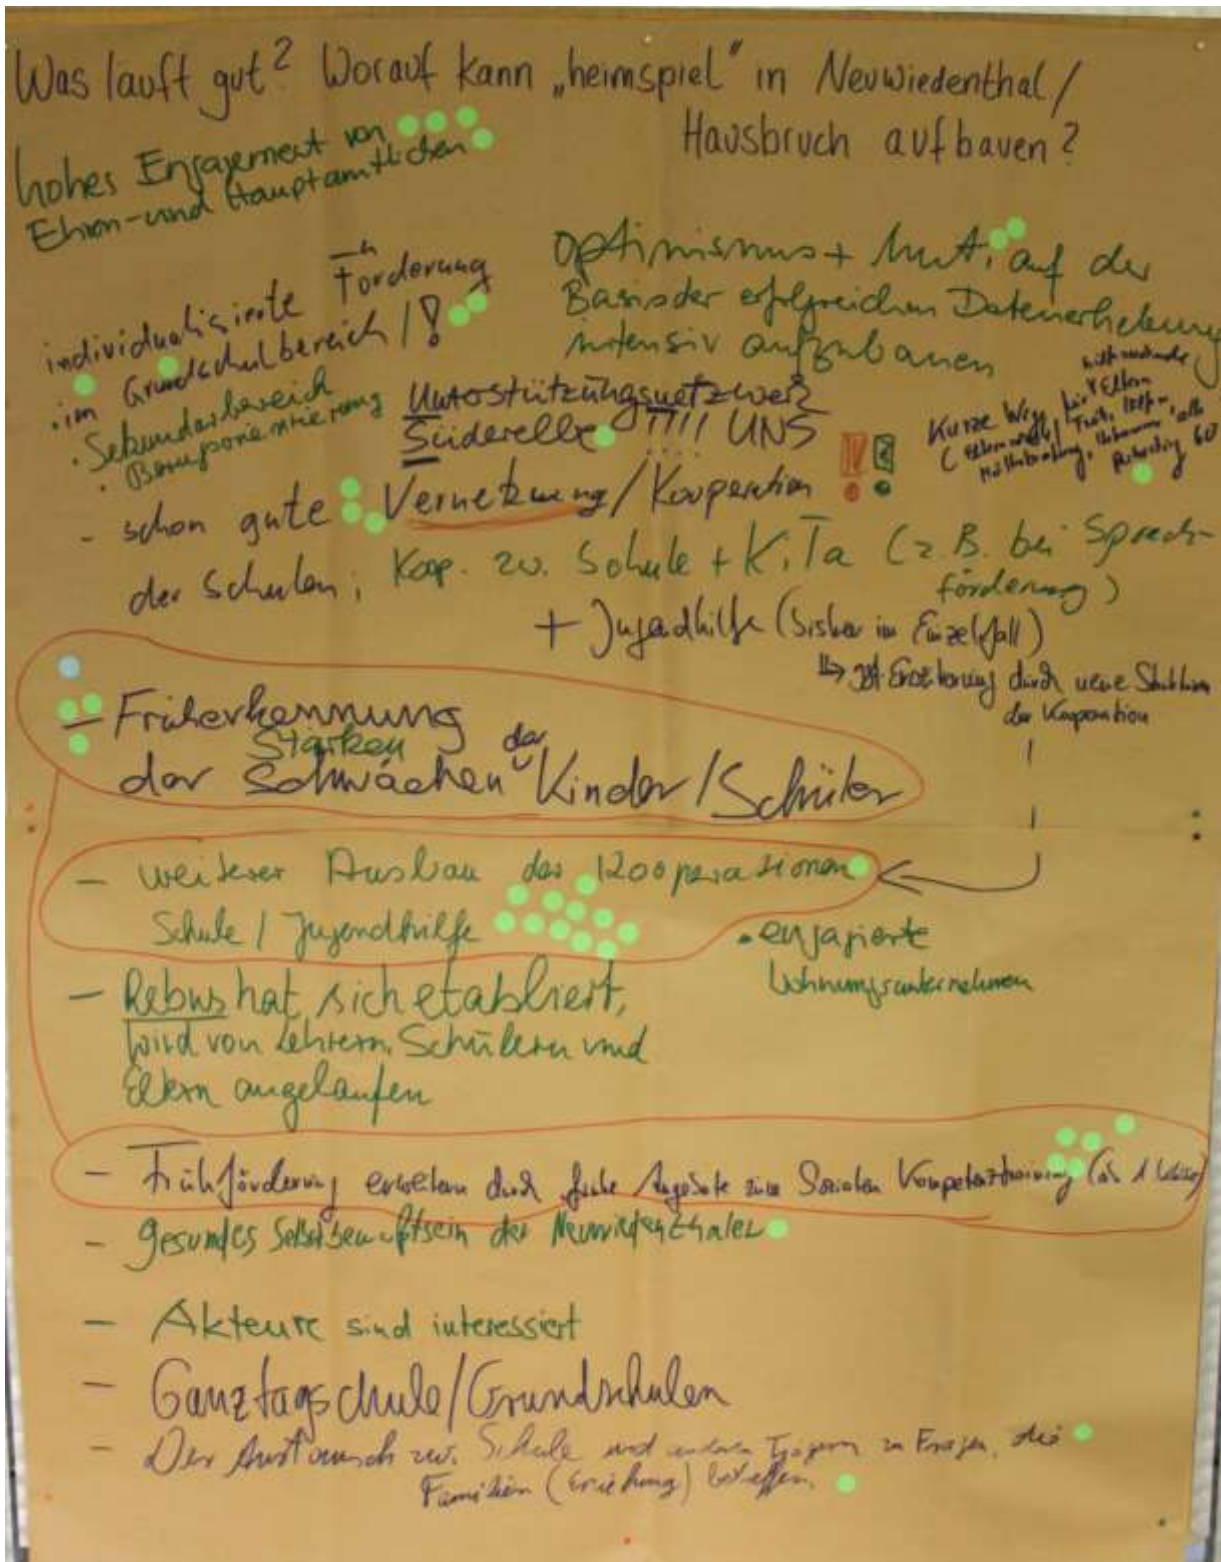 Was lauft gut? Worauf kann „heimspiel" in Neuwiedenthal/
Hausbruch aufbauen?
hohes Engagement von
Ehren- und Hauptamtlichen
individualisierte Förderung
· im Grundschulbereich/!
· Sekundarbereich
· Berufsorientierung
Optimismus + Mut, auf der
Basis der erfolgreichen Datenerhebung
intensiv aufzubauen
Unterstützungsnetzwerk
Süderelbe !!!! UNS
Kurze Wege für Eltern
- schon gute Vernetzung/Kooperation !!
der Schulen; Koop. zw. Schule + KiTa (z.B. bei Sprach-
förderung)
+ Jugendhilfe (bisher im Einzelfall)
Erweiterung durch neue
der Kooperation
- Früherkennung
Stärken
der Schwächen der Kinder/Schüler
- weiterer Ausbau der Kooperationen
Schule / Jugendhilfe
· engagierte
Wohnungsunternehmen
- Rebus hat sich etabliert,
wird von Lehrern, Schülern und
Eltern angelaufen
- Frühförderung erweitern durch frühe Angebote zum Sozialen Kompetenztraining (ab 1 Klasse)
- gesundes Selbstbewußtsein der Neuwiedenthaler
- Akteure sind interessiert
- Ganztagschule/Grundschulen
- Der Austausch zw. Schule und anderen Trägern zu Fragen, die
Familien (Erziehung) betreffen.